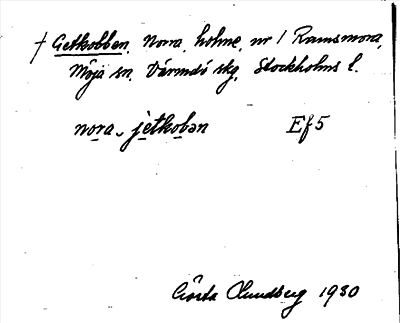 † Getkobben, Norra, holme, nr 1 Ramsmora,
Möja sn, Värmdö skg, Stockholms l.
nora jetkobən Ef5
Gösta Lundberg 1930